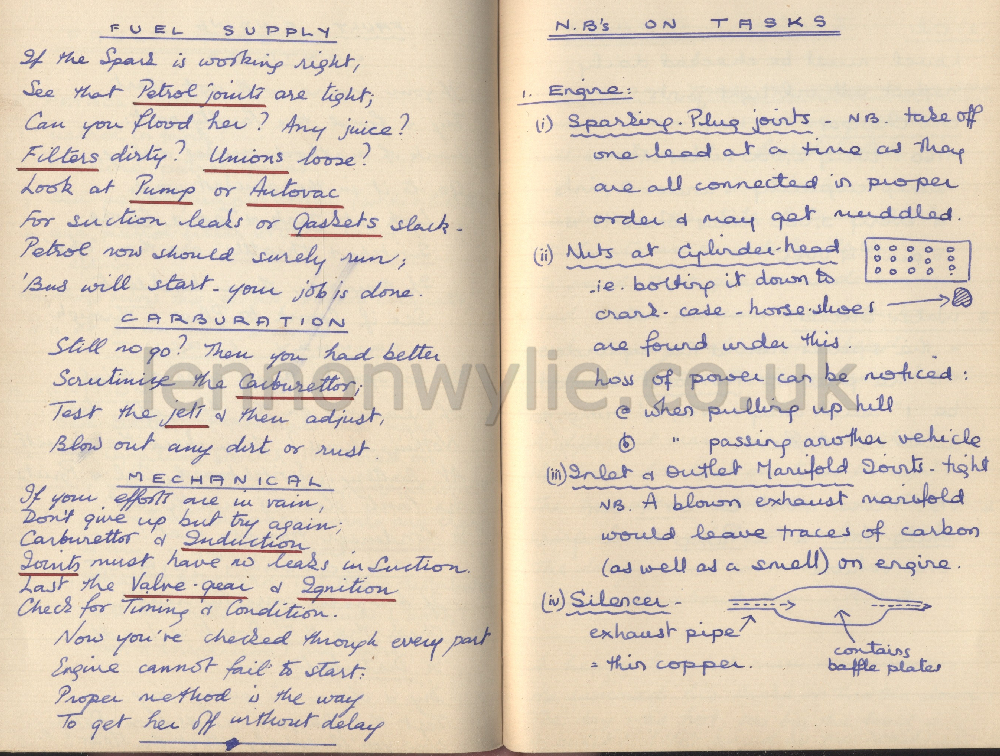 FUEL SUPPLY
If the Spark is working right,
See that Petrol joints are tight;
Can you flood her? Any juice?
Filters dirty? Unions loose?
Look at Pump or Autovac
For suction leaks or Gaskets slack -
Petrol now should surely run;
'Bus will start - your job is done.
CARBURATION
Still no go? Then you had better
Scrutinise the Carburettor;
Test the jets & then adjust,
Blow out any dirt or rust.
MECHANICAL
If your efforts are in vain,
Don't give up but try again;
Carburettor & Induction
Joints must have no leaks in Suction.
Last the Valve-gear & Ignition
Check for Timing & Condition.
Now you've checked through every part
Engine cannot fail to start:
Proper method is the way
To get her off without delay
N.B's ON TASKS
1. Engine:
(i) Sparking-Plug joints - NB. take off
one lead at a time as they
are all connected in proper
order & may get muddled.
(ii) Nuts at Cylinder-head
-ie. bolting it down to
crank-case - horse-shoes
are found under this.
Loss of power can be noticed:
(a) when pulling up hill
(b) " passing another vehicle
(iii) Inlet & Outlet Manifold Joints - tight
NB. A blown exhaust manifold
would leave traces of carbon
(as well as a smell) on engine.
(iv) Silencer -
exhaust pipe
= this copper.
contains
baffle plates
lennonwylie.co.uk